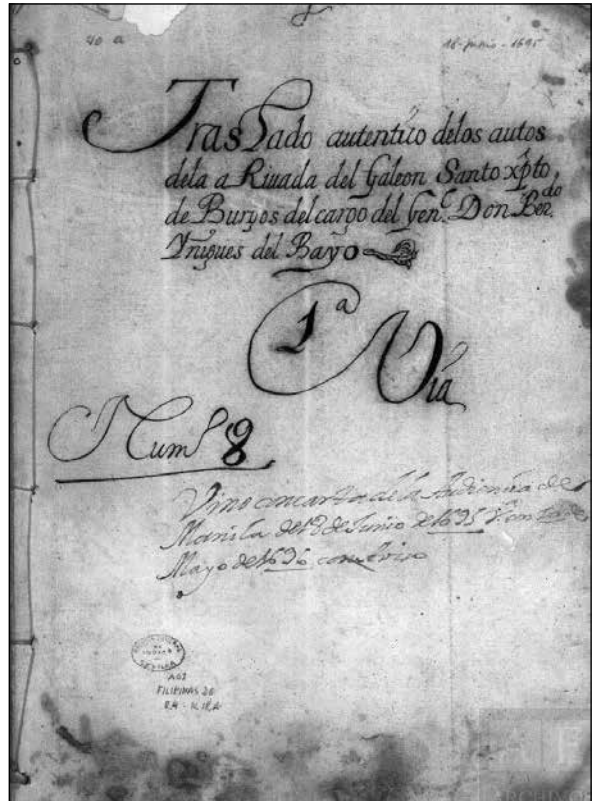 40 a
16-junio-1695
Traslado autentico delos autos
dela a Riuada del Galeon Santo xpto,
de Burgos del cargo del Gen.l Don Ber.do
Yñigues del Bayo
1a Via
Num.o 8
Vino con carta de la Audiencia de
Manila de 18 de Junio de 1695 V. en
Mayo de 1696 con Aviso
ARCHIVO GENERAL
DE
INDIAS
SEVILLA
AGI
FILIPINAS 26
R.4 - N.18A